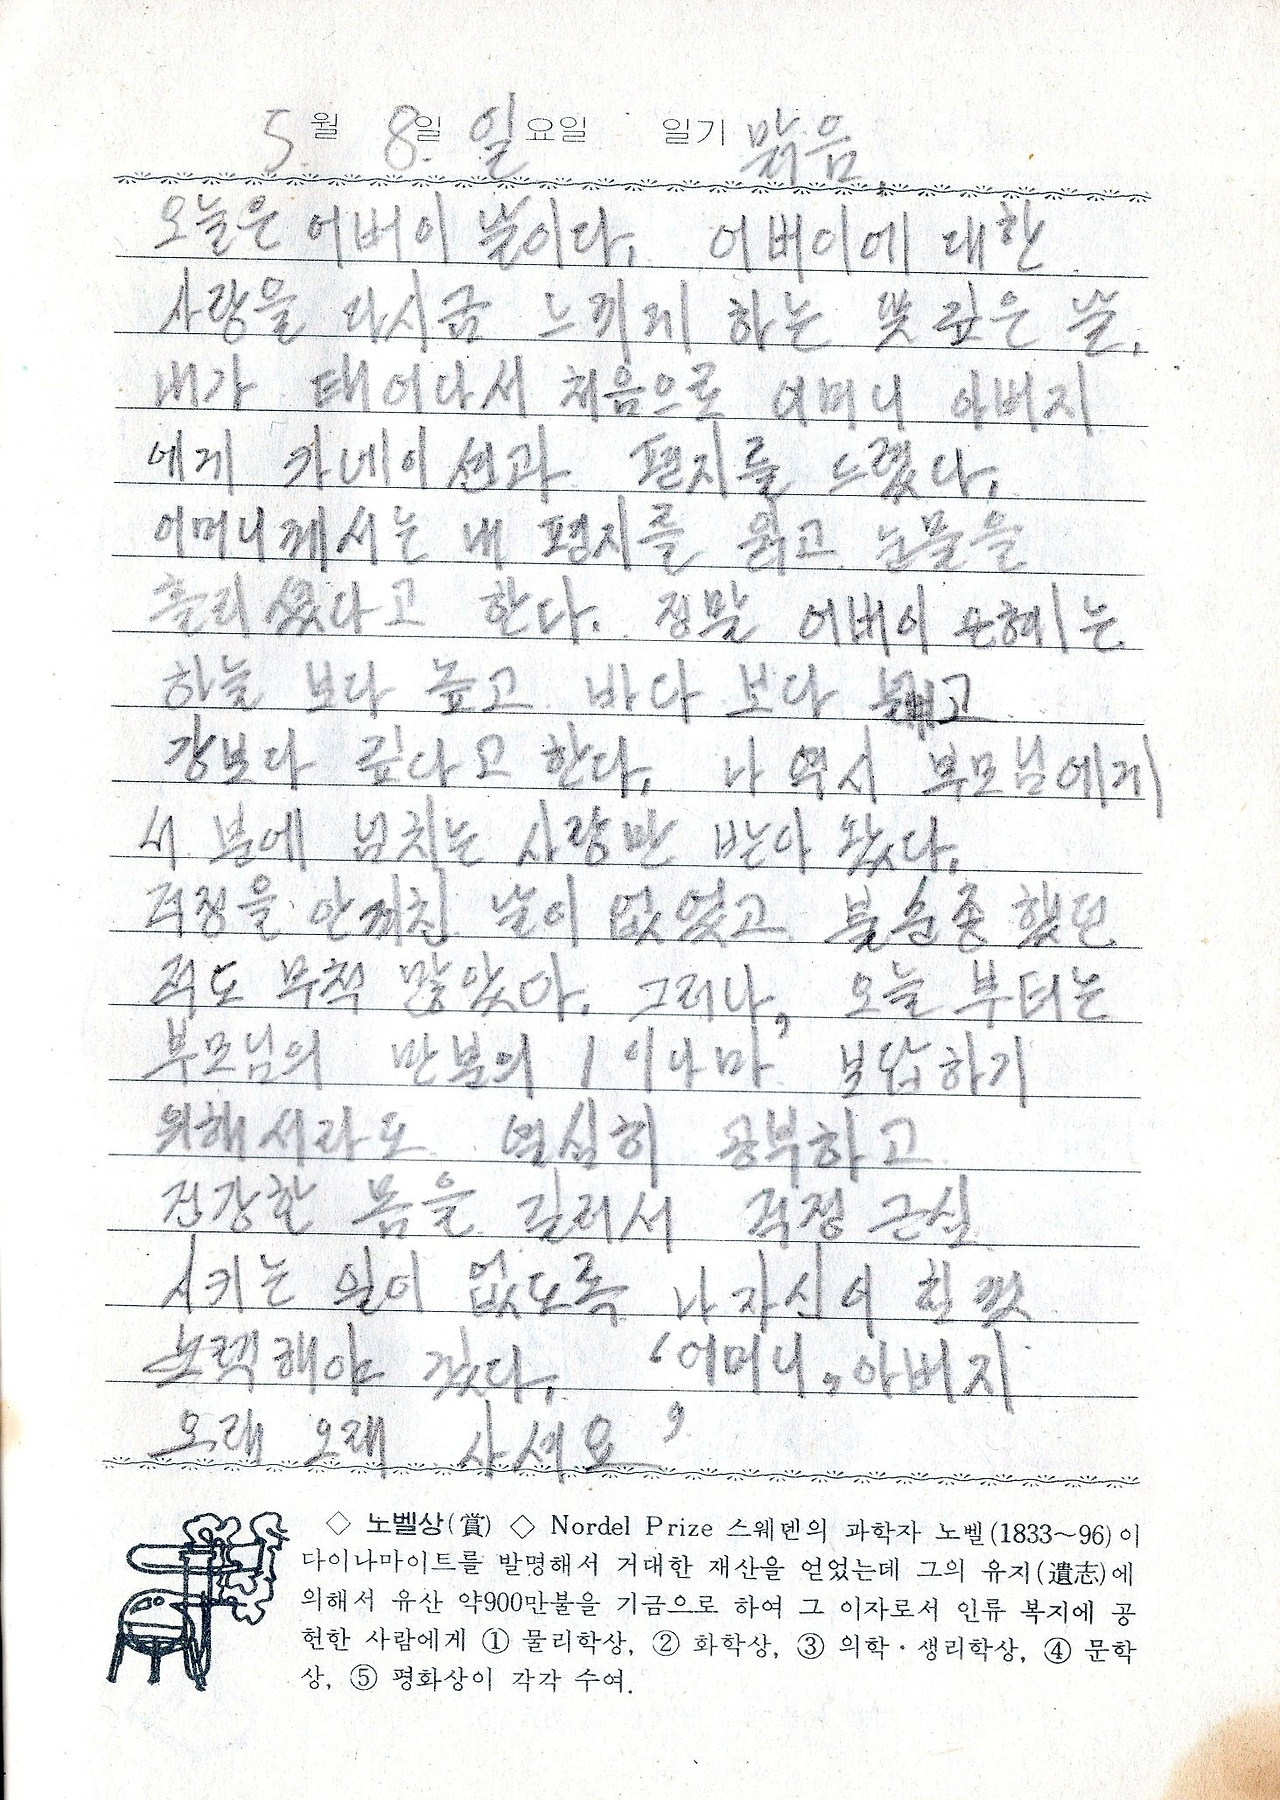 5월 8일 일요일 일기 맑음
오늘은 어버이 날이다. 어버이에 대한
사랑을 다시금 느끼게 하는 뜻 깊은 날.
내가 태어나서 처음으로 어머니 아버지
에게 카네이션과 편지를 드렸다.
어머니께서는 내 편지를 읽고 눈물을
흘리셨다고 한다. 정말 어버이 은혜는
하늘 보다 높고 바다 보다 넓고
강보다 깊다고 한다. 나 역시 부모님에게
서 분에 넘치는 사랑만 받아 왔다.
걱정을 안끼친 날이 없었고 불순종 했던
적도 무척 많았다. 그러나, 오늘 부터는
부모님의 만분의 1 이나마 보답하기
위해서라도 열심히 공부하고
건강한 몸을 길러서 걱정 근심
시키는 일이 없도록 나 자신이 힘껏
노력해야 겠다. ‘어머니, 아버지
오래 오래 사세요’
◇ 노벨상(賞) ◇ Nordel Prize 스웨덴의 과학자 노벨(1833~96)이
다이나마이트를 발명해서 거대한 재산을 얻었는데 그의 유지(遺志)에
의해서 유산 약900만불을 기금으로 하여 그 이자로서 인류 복지에 공
헌한 사람에게 ① 물리학상, ② 화학상, ③ 의학·생리학상, ④ 문학
상, ⑤ 평화상이 각각 수여.